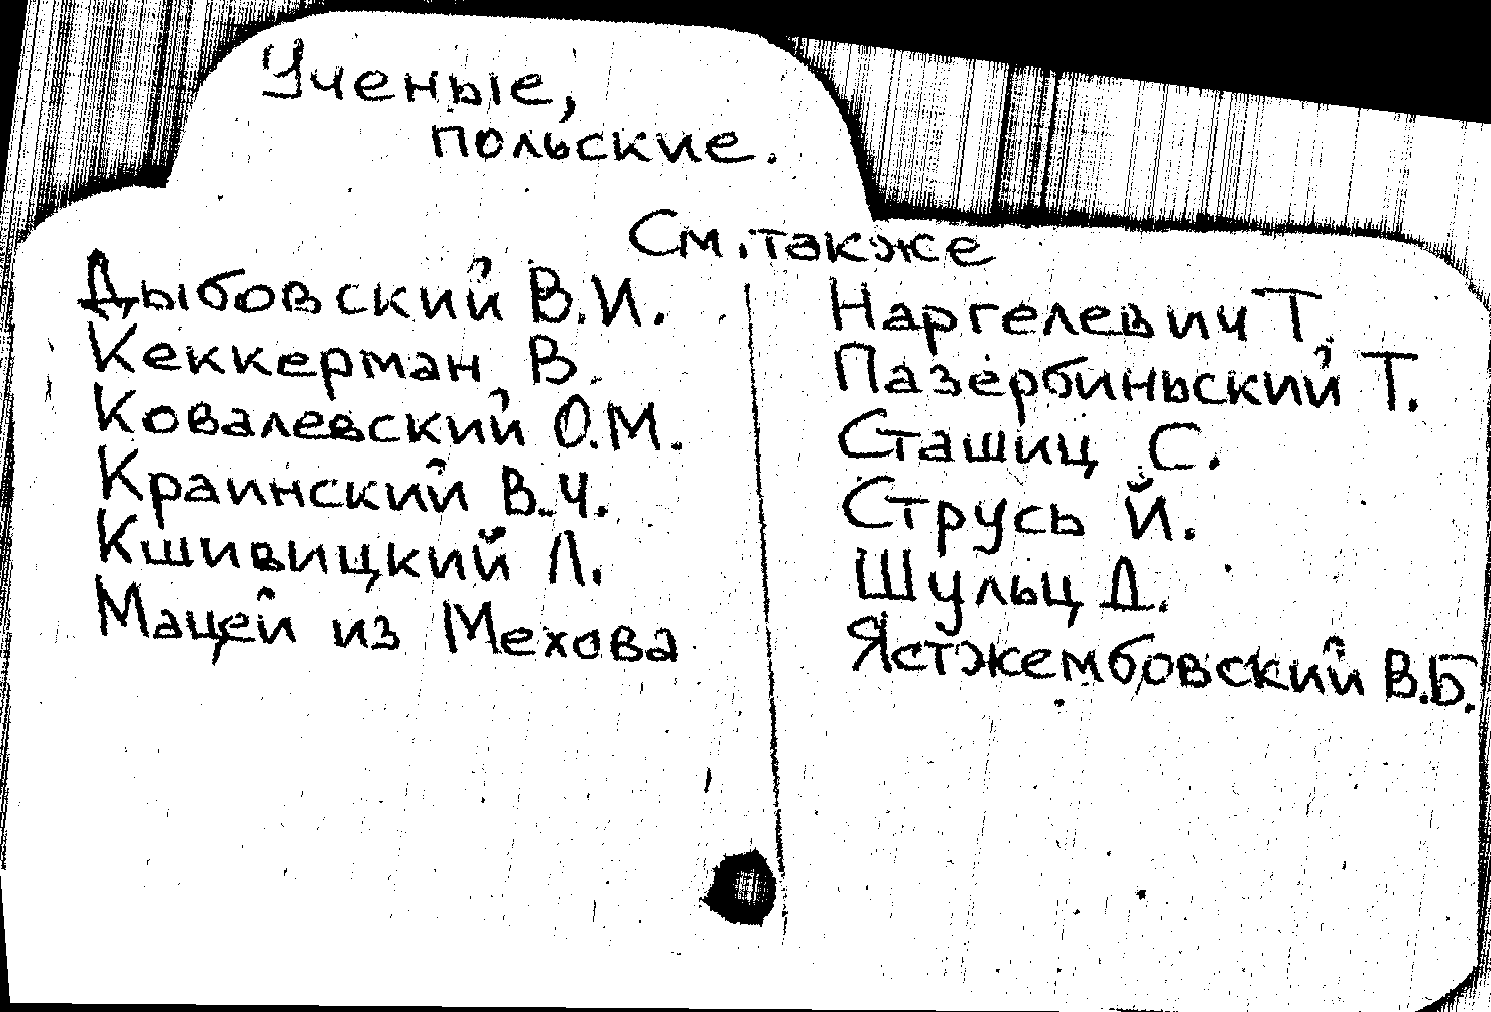 Ученые,
польские.
См. также
Дыбовский В.И.
Кеккерман В.
Ковалевский О.М.
Краинский В.Ч.
Кшивицкий Л.
Мацей из Мехова
Наргелевич Т.
Пазербиньский Т.
Сташиц С.
Струсь Й.
Шульц Д.
Ястжембовский В.Б.